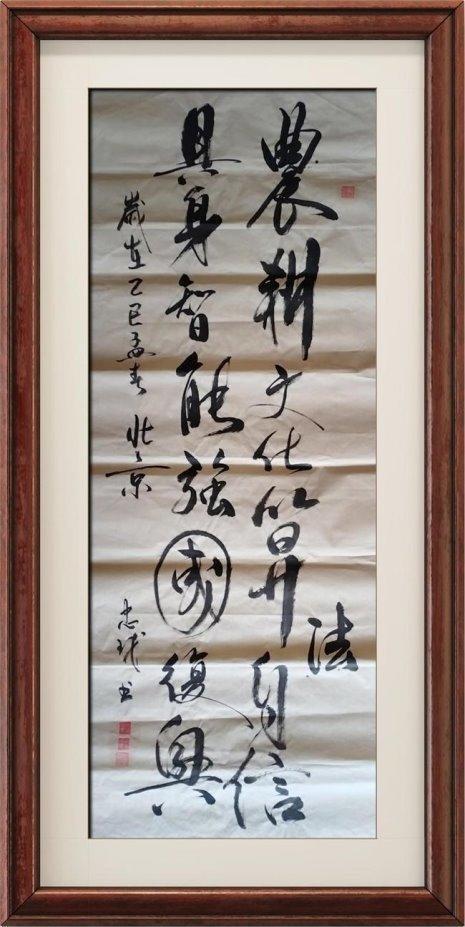 農耕文化算法自信
具身智能強國復興
歲在乙巳孟春 北京 忠球书